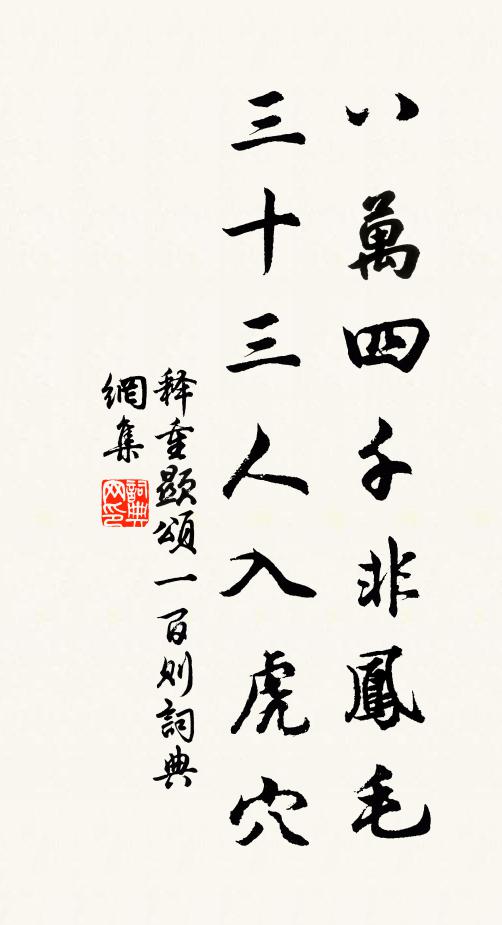 八萬四千非鳳毛
三十三人入虎穴
释重顯頌一百则詞典
網集
詞典
网印